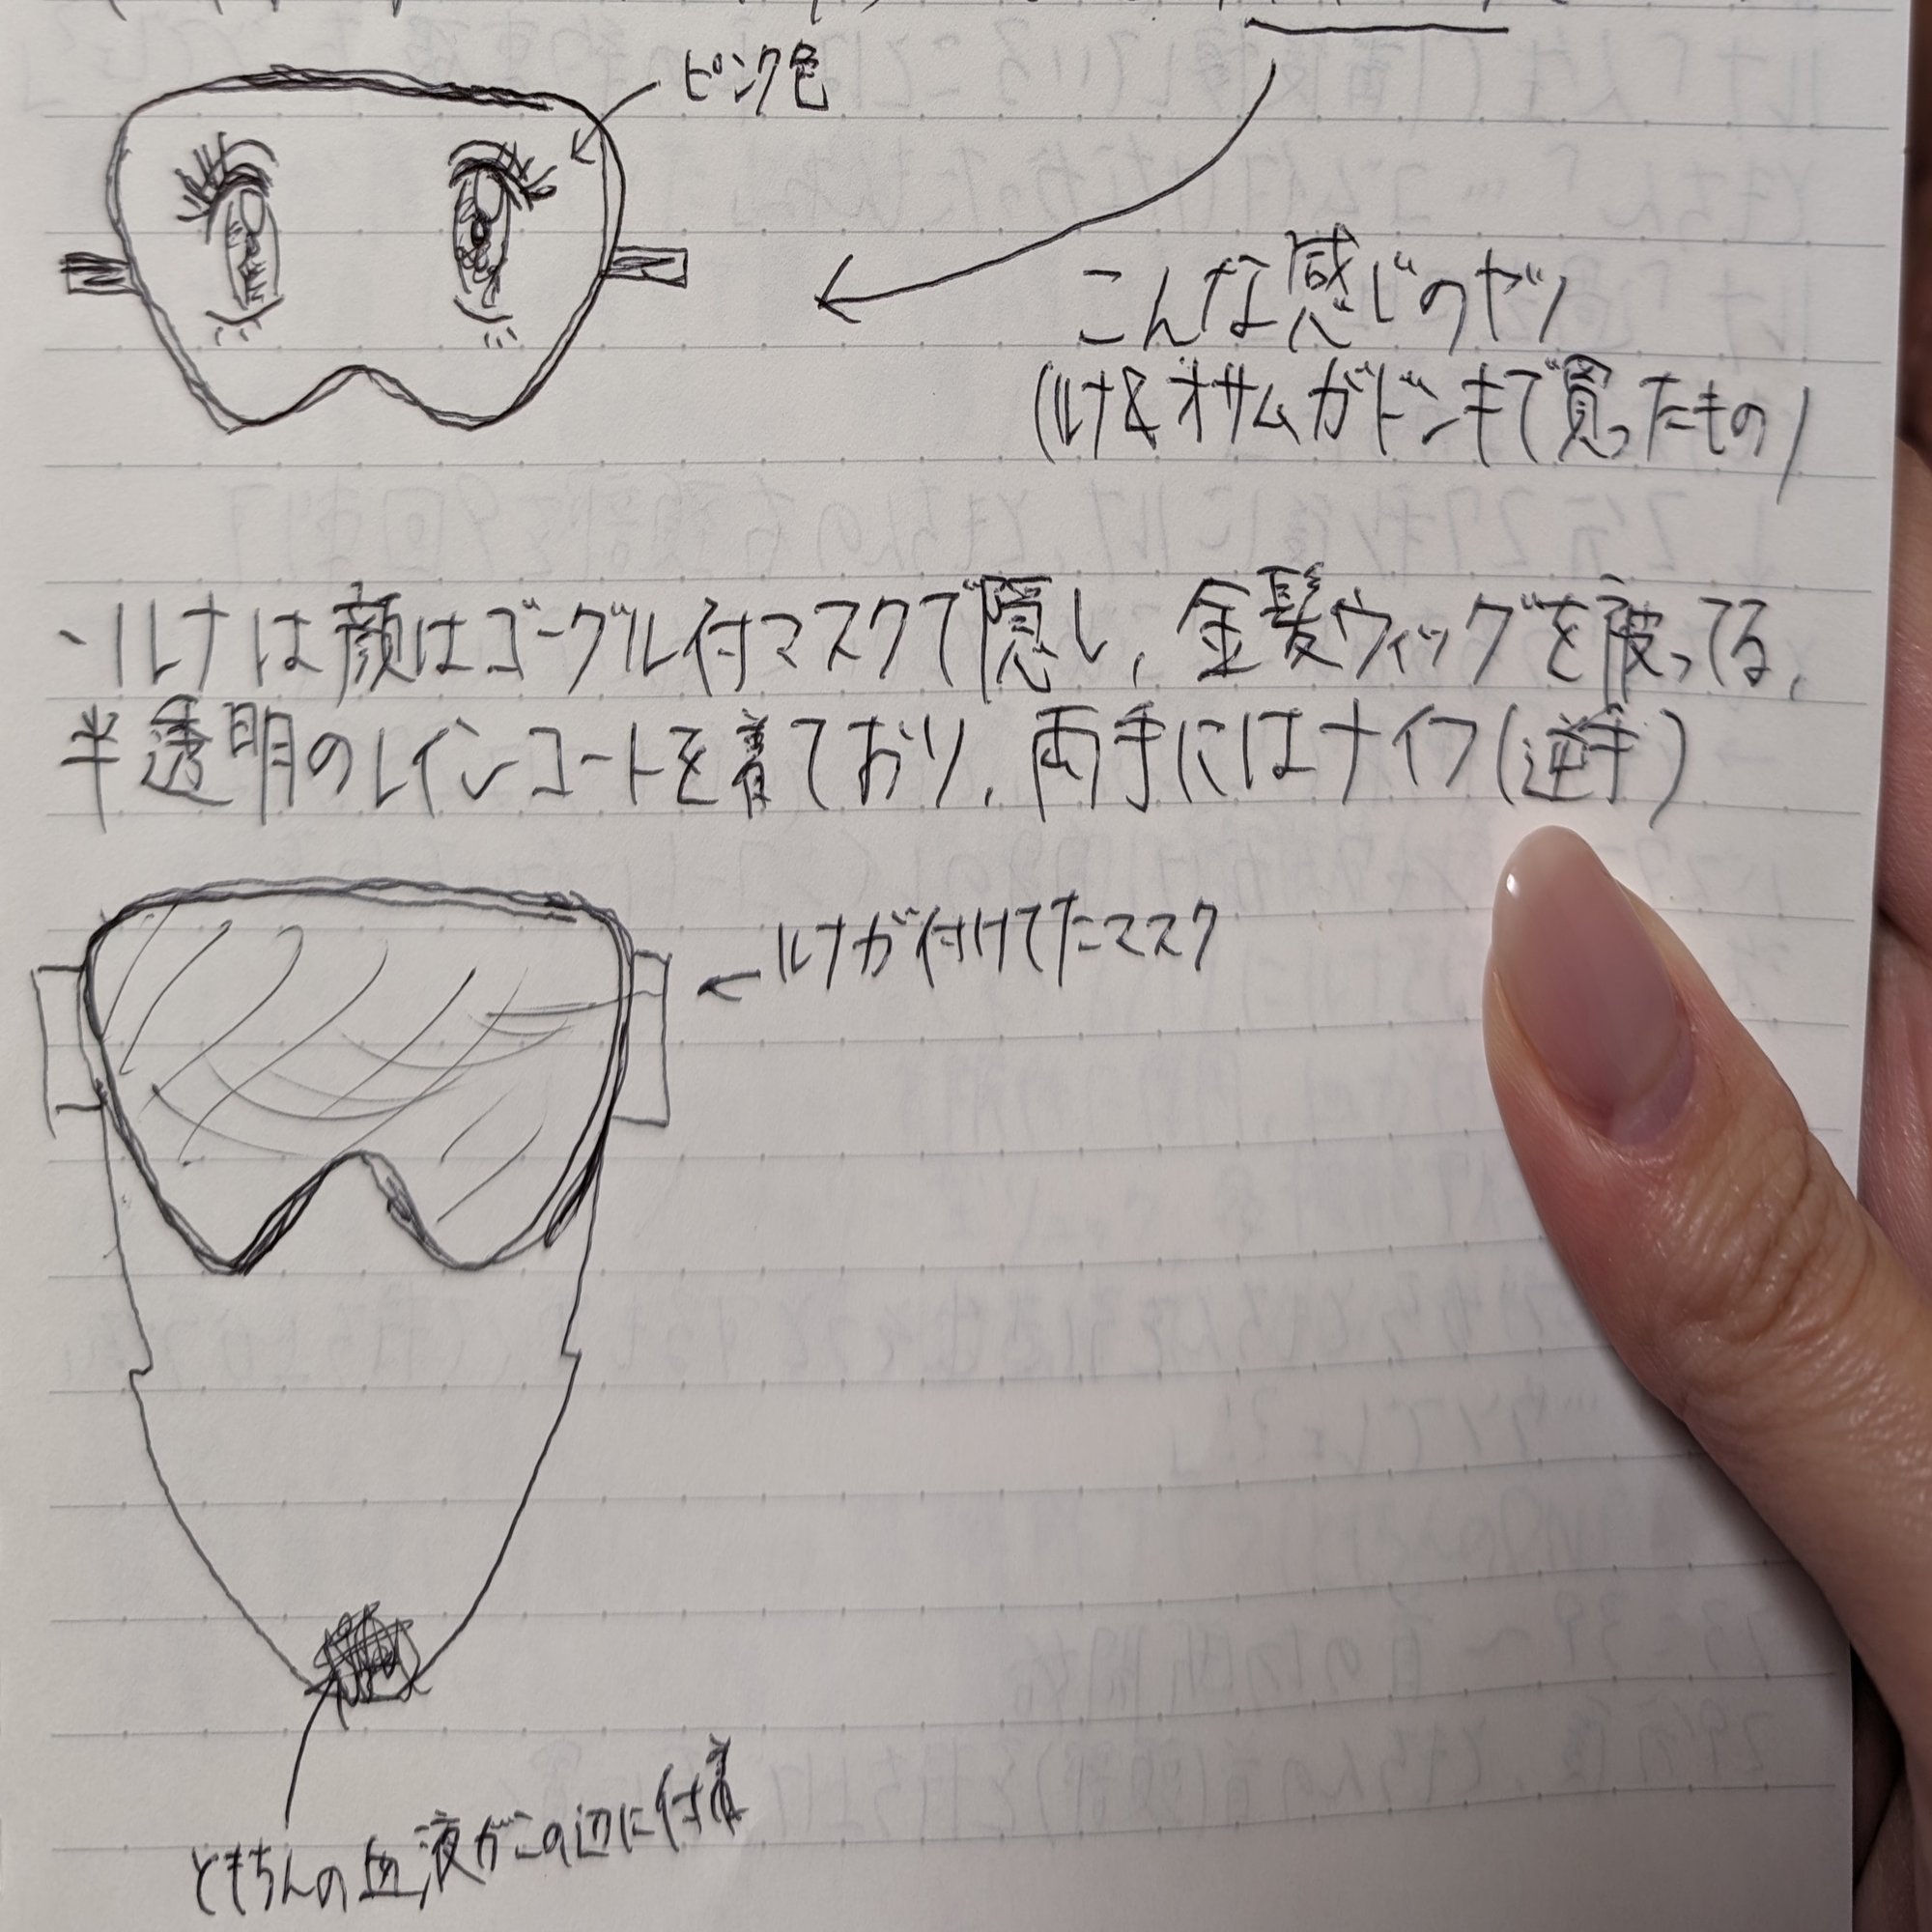 ピンク色
こんな感じのヤツ
(ルナ&オサムがドンキで買ったもの)
・ルナは顔はゴーグル付マスクで隠し、金髪ウィッグを被ってる、
半透明のレインコートを着ており、両手にはナイフ(逆手)
←ルナが付けてたマスク
ともちんの血液がこの辺に付着